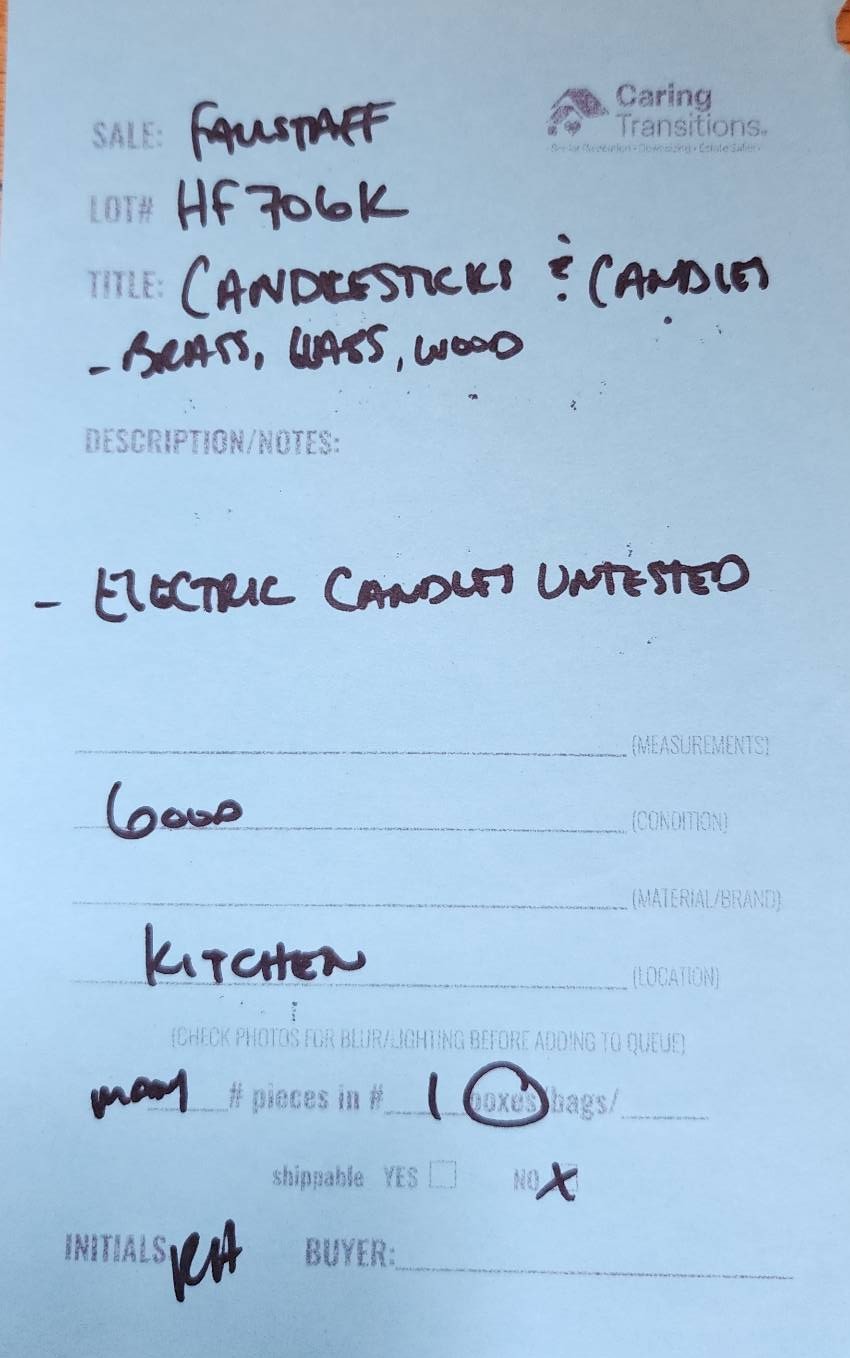 Caring
Transitions
Senior Relocation • Downsizing • Estate Sales
SALE: FALLSTAFF
LOT# HF706K
TITLE: CANDLESTICKS & CANDLES
- BRASS, GLASS, WOOD
DESCRIPTION/NOTES:
- ELECTRIC CANDLES UNTESTED
(MEASUREMENTS)
GOOD (CONDITION)
(MATERIAL/BRAND)
KITCHEN (LOCATION)
(CHECK PHOTOS FOR BLUR/LIGHTING BEFORE ADDING TO QUEUE)
many # pieces in # 1 boxes/bags/
shippable YES NO X
INITIALS KH BUYER: